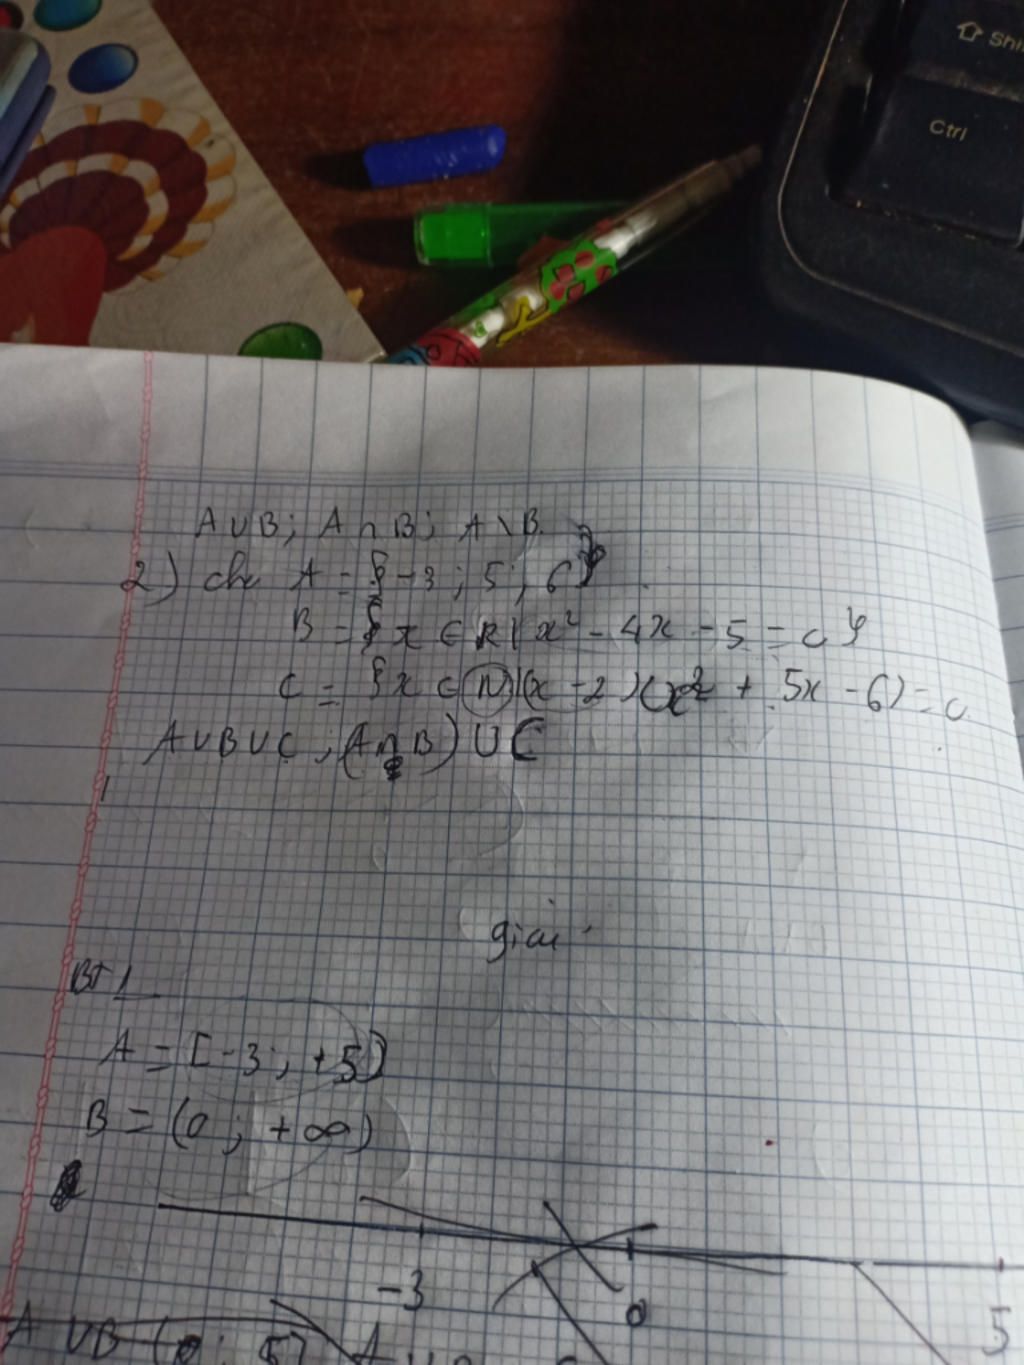 Shi
Ctrl
A∪B; A∩B; A\B.
2) cho A = {-3; 5; 6}
B = {x ∈ R | x² - 4x - 5 = 0}
C = {x ∈ N | (x - 2)(x² + 5x - 6) = 0
A∪B∪C; (A∩B)∪C
1
giải
BT 1
A = [-3; +5)
B = (0; +∞)
-3
0
5
A∪B (0; 5)